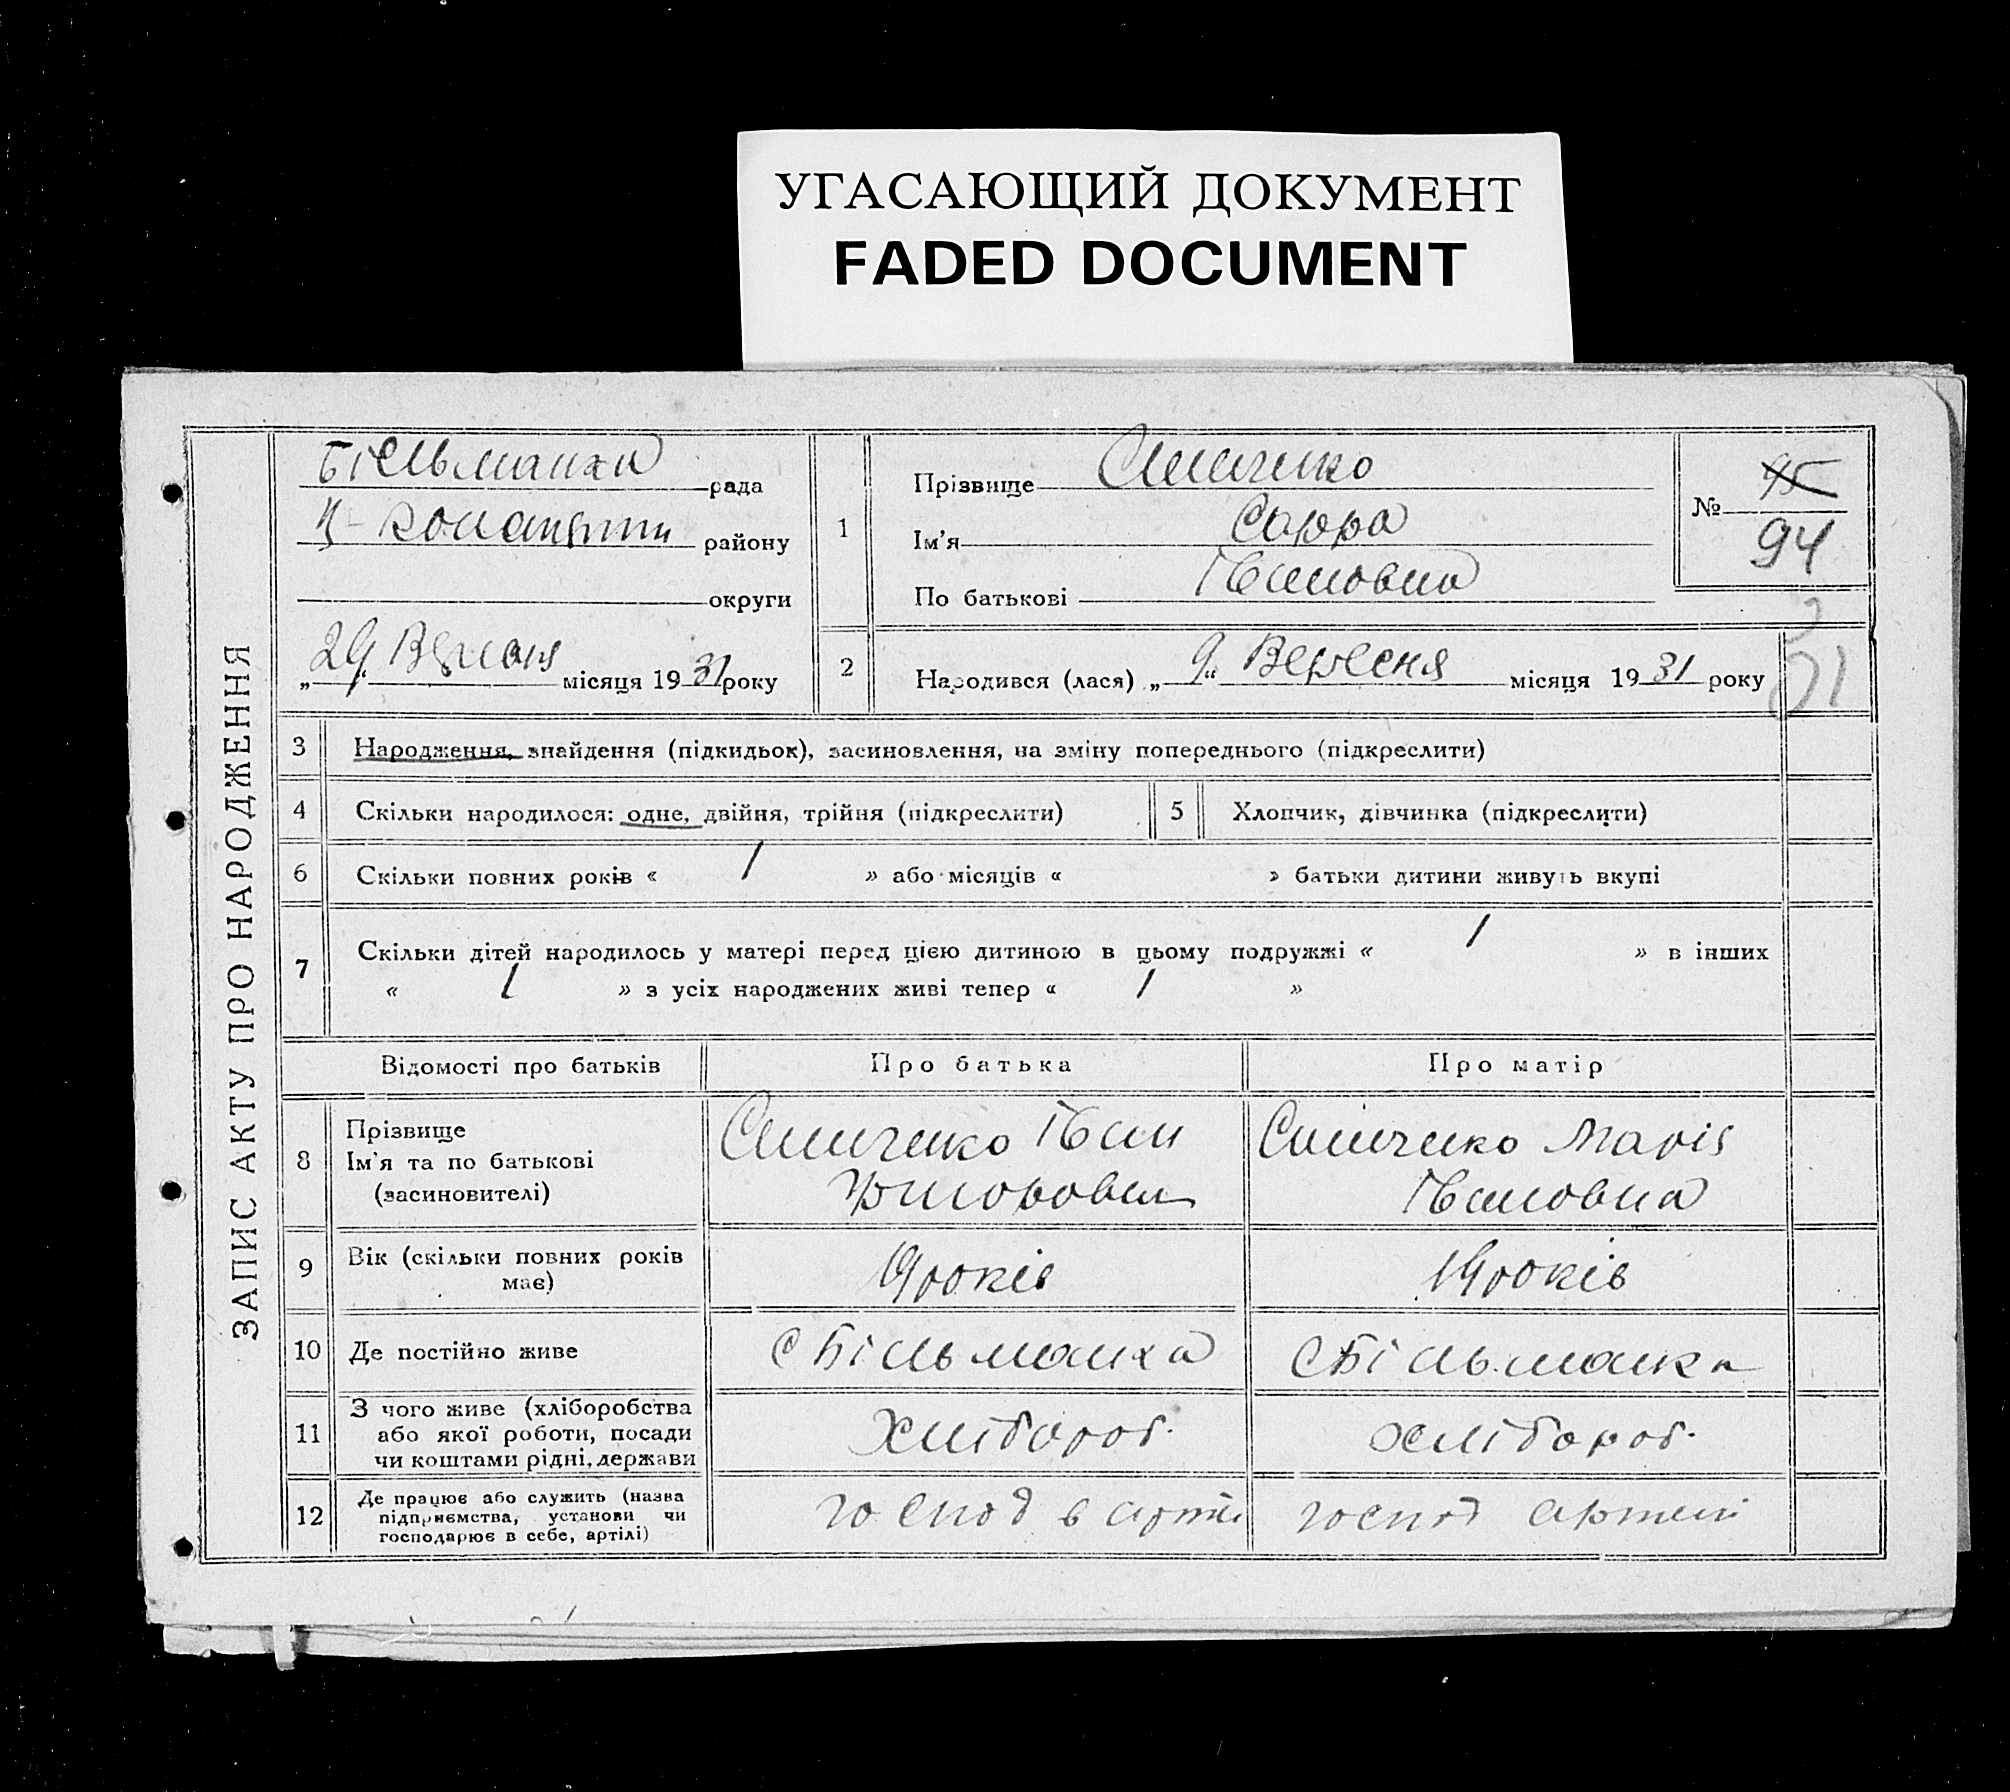 УГАСАЮЩИЙ ДОКУМЕНТ
FADED DOCUMENT
ЗАПИС АКТУ ПРО НАРОДЖЕННЯ
Більманка рада
району
округи
„29“ Вересня місяця 1931 року
1
Прізвище
Ім'я Сарра
По батькові Івановна
№ 95
94
2 Народився (лася) „9“ Вересня місяця 1931 року
3 Народження, знайдення (підкидьок), засиновлення, на зміну попереднього (підкреслити)
4 Скільки народилося: одне, двійня, трійня (підкреслити)
5 Хлопчик, дівчинка (підкреслити)
6 Скільки повних років « / » або місяців « » батьки дитини живуть вкупі
7 Скільки дітей народилось у матері перед цією дитиною в цьому подружжі « / » в інших
« / » з усіх народжених живі тепер « / »
Відомості про батьків Про батька Про матір
8 Прізвище
Ім'я та по батькові
(засиновителі)
Іван
Марія
Івановна
9 Вік (скільки повних років
має)
19 років
19 років
10 Де постійно живе с Більманка с Більманка
11 З чого живе (хліборобства
або якої роботи, посади
чи коштами рідні, держави
Хлібороб.
хлібороб.
12 Де працює або служить (назва
підприємства, установи чи
господарює в себе, артілі)
господ в артілі
господ артілі